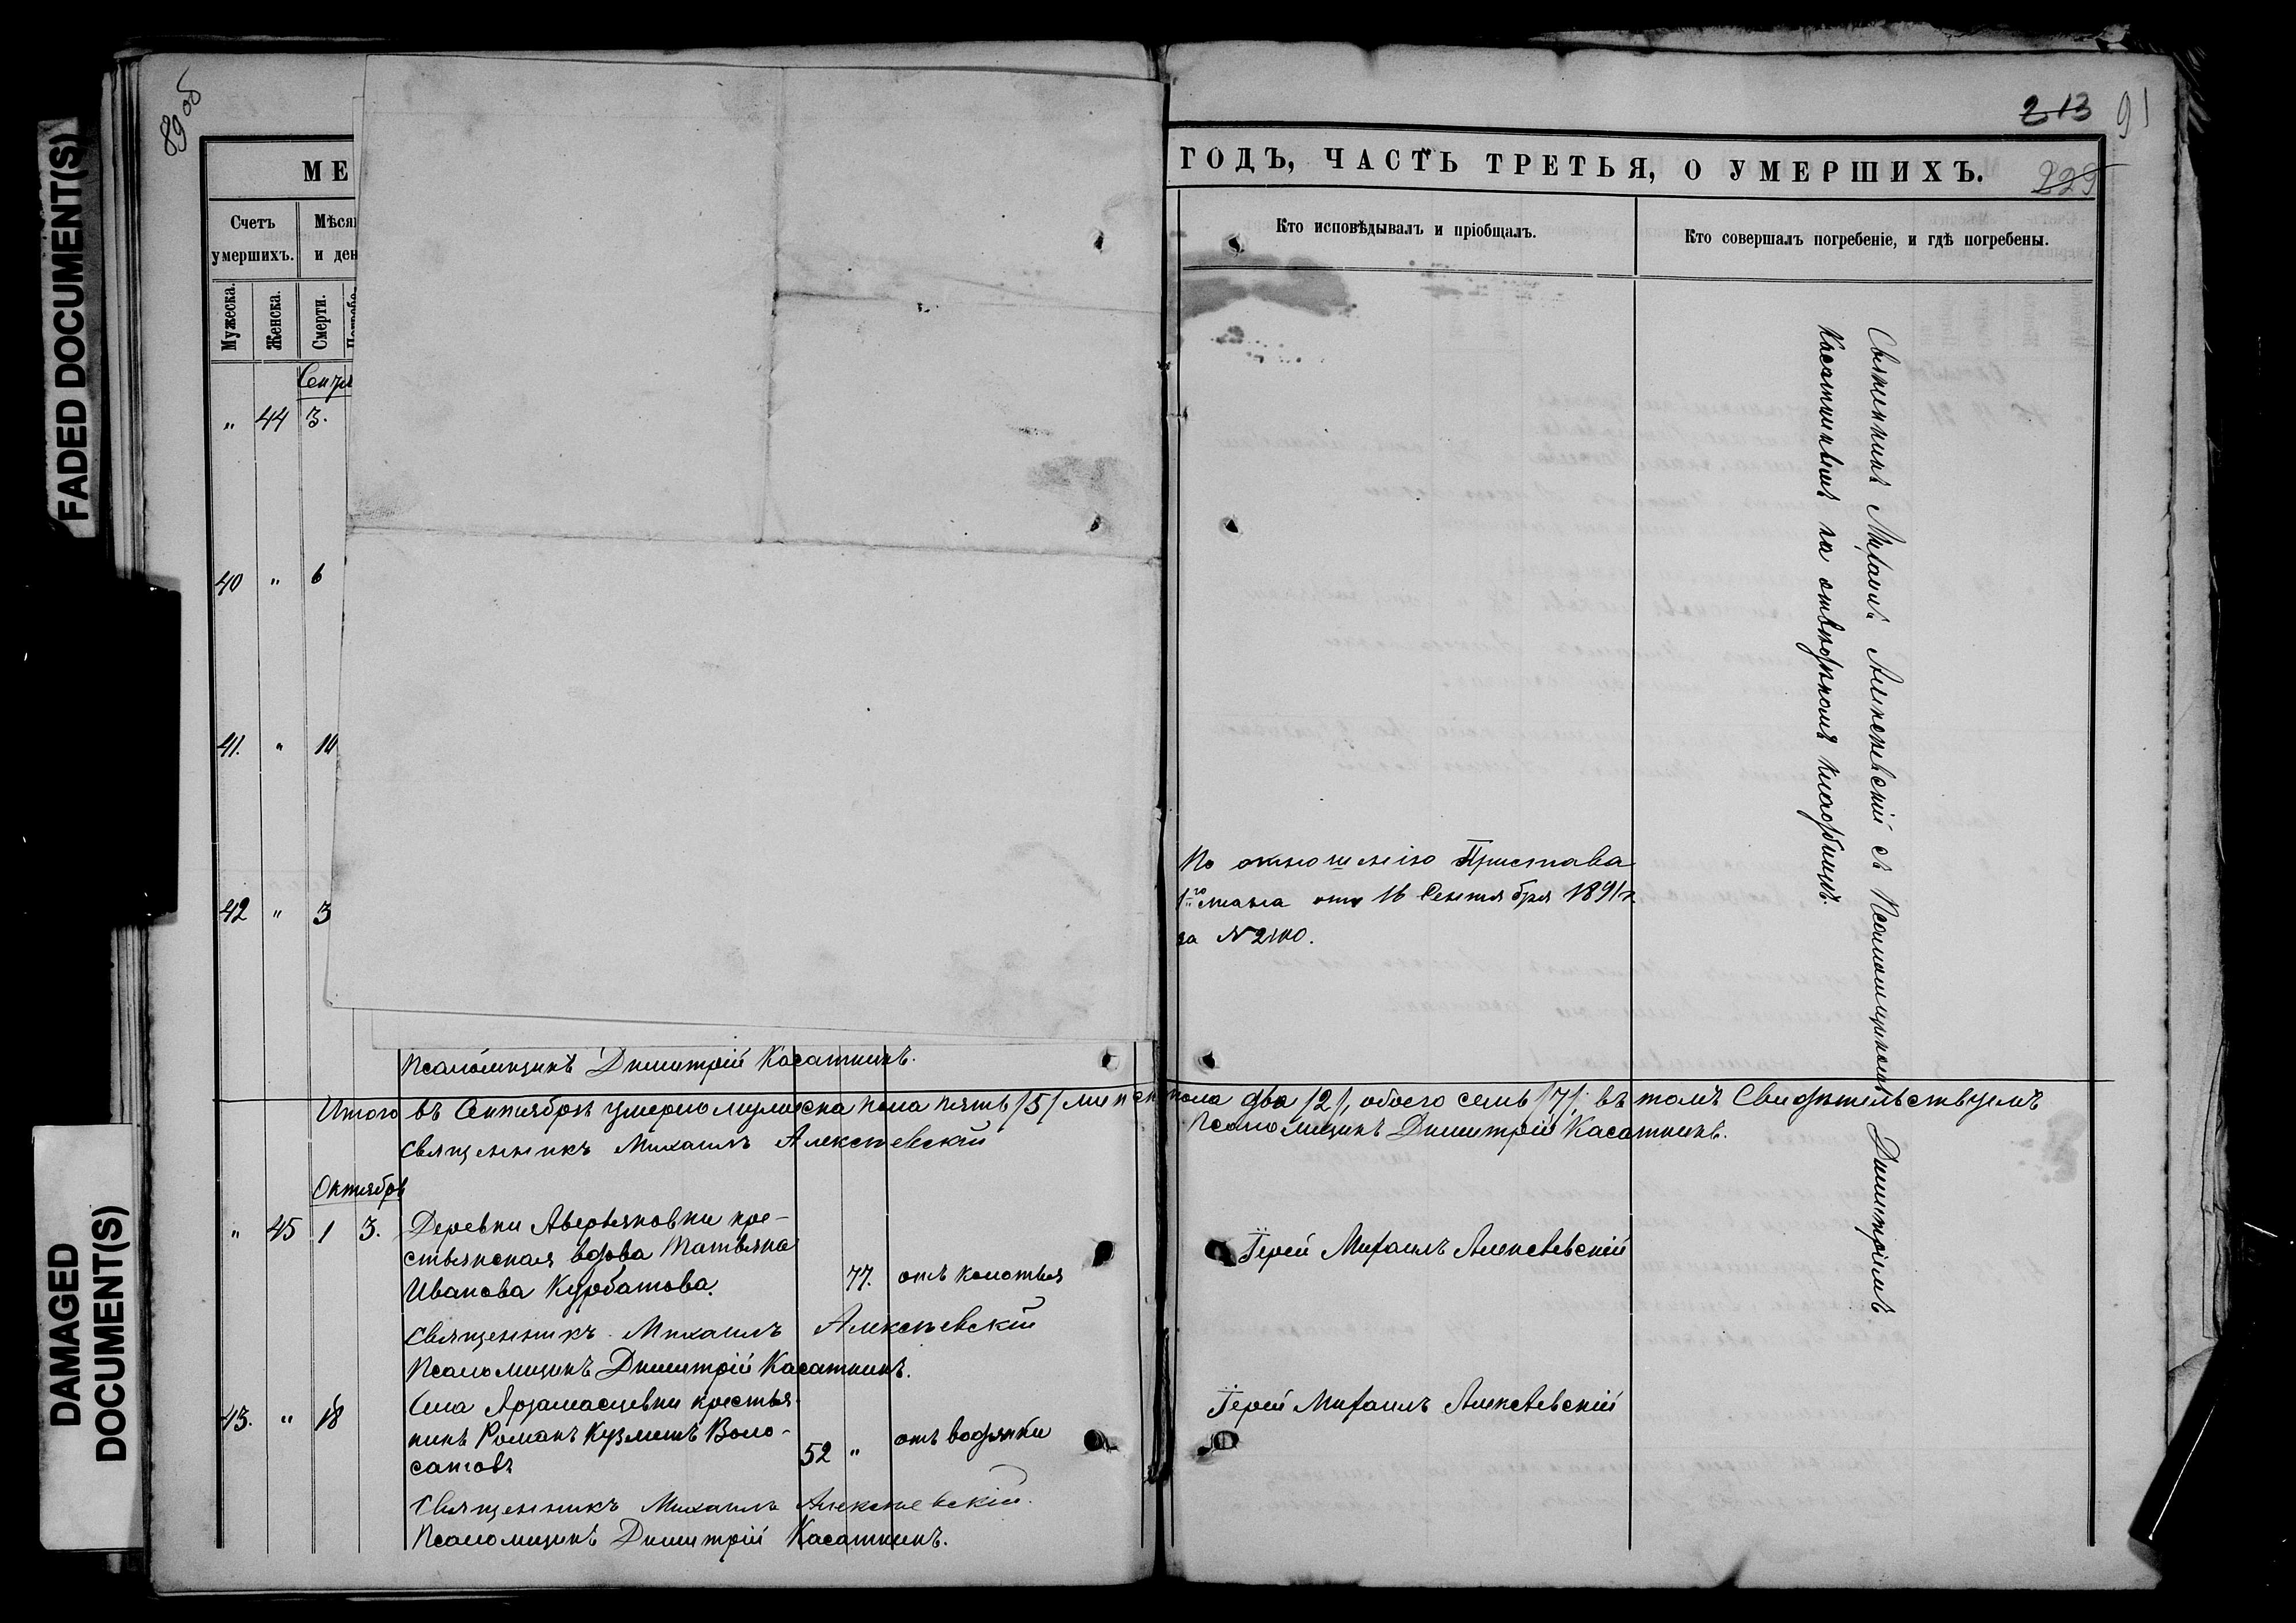 FADED DOCUMENT(S)
DAMAGED DOCUMENT(S)
89 об
213 91
229
МЕ
ГОДЪ, ЧАСТЬ ТРЕТЬЯ, О УМЕРШИХЪ.
Счетъ умершихъ.
Мѣся
и ден
Мужеска.
Женска.
Смерти.
Кто исповѣдывалъ и пріобщалъ.
Кто совершалъ погребеніе, и гдѣ погребены.
Сентя
" 44 3.
40 " 6
41. " 14
42 " 3
По отношенію Пристава
1го стана отъ 16 Сентября 1891 г.
за №
Священникъ Михаилъ Алексѣевскій съ Псаломщикомъ Димитріемъ
Касаткинымъ на отведенномъ кладбищѣ.
Псаломщикъ Димитрій Касаткинъ.
Итого въ Сентябрѣ умерло мужеска пола пять /5/ женск пола два /2/, обоего семь /7/, въ томъ Свидѣтельствуемъ
Священникъ Михаилъ Алексѣевскій
Псаломщикъ Димитрій Касаткинъ.
Октябрь
" 45 1 3. Деревни Аверьяновки кре-
стьянская вдова Татьяна
Иванова Курбатова. 77. отъ колотья
Іерей Михаилъ Алексѣевскій
Священникъ Михаилъ Алексѣевскій
Псаломщикъ Димитрій Касаткинъ.
43. " 18 Села Арзамасцевки крестья-
нинъ Романъ Кузминъ Воло-
сатовъ 52 " отъ водянки
Іерей Михаилъ Алексѣевскій
Священникъ Михаилъ Алексѣевскій.
Псаломщикъ Димитрій Касаткинъ.